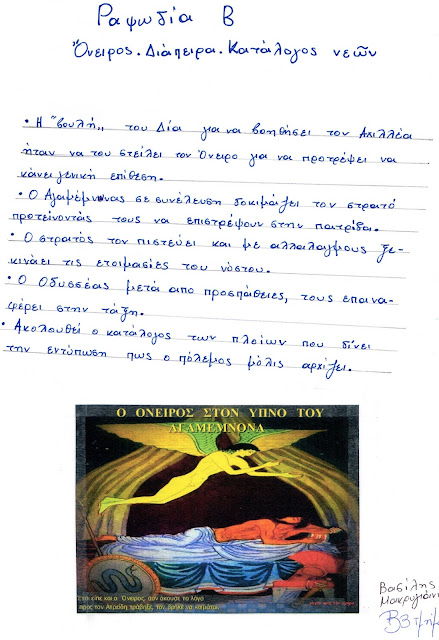 Ραψωδία Β
Ὄνειρος. Διάπειρα. Κατάλογος νεῶν
• Η "βουλή„ του Δία για να βοηθήσει τον Αχιλλέα
ήταν να του στείλει τον Όνειρο για να προτρέψει να
κάνει γενική επίθεση.
• Ο Αγαμέμνονας σε συνέλευση δοκιμάζει τον στρατό
προτείνοντάς τους να επιστρέψουν στην πατρίδα.
• Ο στρατός τον πιστεύει και με αλλαλαγμους ξε-
κινάει τις ετοιμασίες του νόστου.
• Ο Οδυσσέας μετά απο προσπάθειες, τους επανα-
φέρει στην τάξη.
• Ακολουθεί ο κατάλογος των πλοίων που δίνει
την εντύπωση πως ο πόλεμος μόλις αρχίζει.
Ο ΟΝΕΙΡΟΣ ΣΤΟΝ ΥΠΝΟ ΤΟΥ
ΑΓΑΜΕΜΝΟΝΑ
Έτσι είπε και ο Όνειρος, σαν άκουσε το λόγο
προς τον Ατρείδη τράβηξε, τον βρήκε να κοιμάται.
Βασίλης
Β3